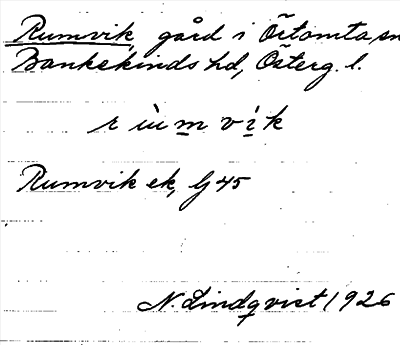 Rumvik, gård i Örtomta, sn
Bankekinds hd, Österg. l.
r ù m v ì k
Rumvik ek, G 45
N. Lindqvist 1926